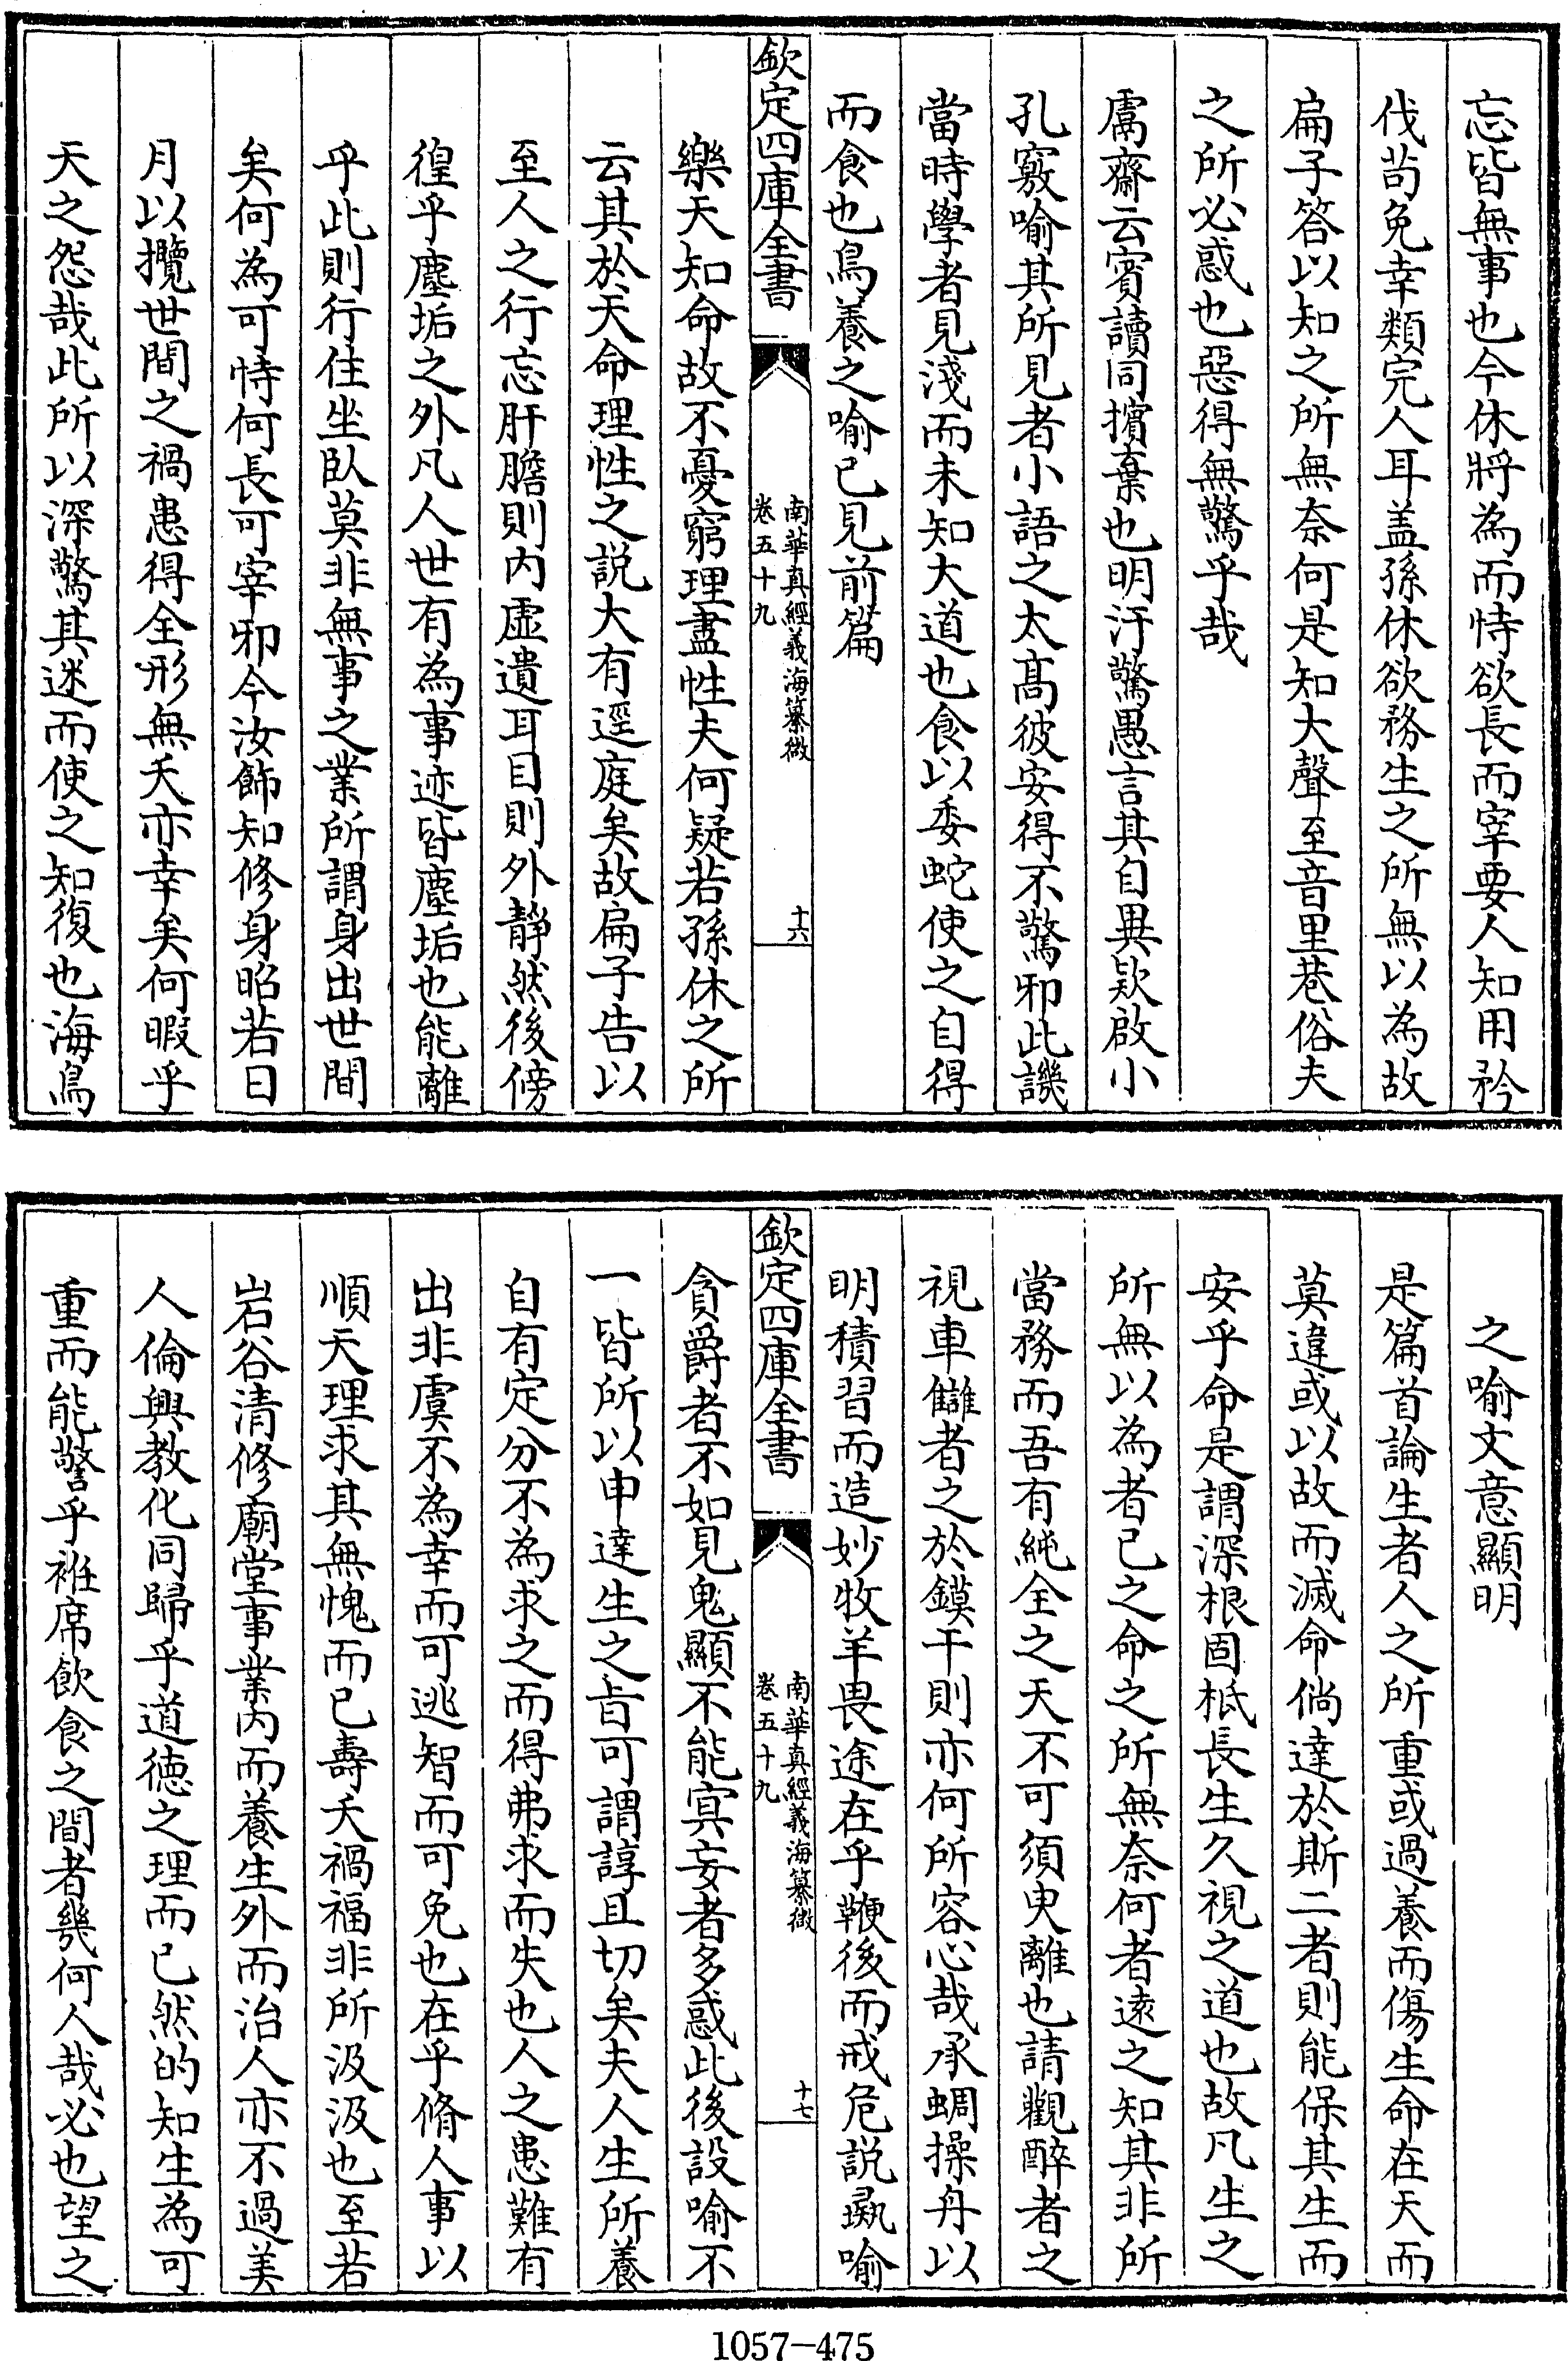 忘皆無事也今休將為而恃欲長而宰要人知用矜
伐苟免幸類完人耳盖孫休欲務生之所無以為故
扁子答以知之所無奈何是知大聲至音里巷俗夫
之所必惑也惡得無驚乎哉
鬳齋云賓讀同擯棄也明汙驚愚言其自異欵啟小
孔竅喻其所見者小語之太髙彼安得不驚邪此譏
當時學者見淺而未知大道也食以委蛇使之自得
而食也鳥養之喻已見前篇
欽定四庫全書
南華真經義海纂微
卷五十九
十六
樂天知命故不憂窮理盡性夫何疑若孫休之所
云其於天命理性之説大有逕庭矣故扁子告以
至人之行忘肝膽則内虛遺耳目則外靜然後傍
徨乎塵垢之外凡人世有為事迹皆塵垢也能離
乎此則行住坐臥莫非無事之業所謂身出世間
矣何為可恃何長可宰邪今汝飾知修身昭若日
月以攬世間之禍患得全形無夭亦幸矣何暇乎
天之怨哉此所以深驚其迷而使之知復也海鳥
之喻文意顯明
是篇首論生者人之所重或過養而傷生命在天而
莫違或以故而滅命倘達於斯二者則能保其生而
安乎命是謂深根固柢長生久視之道也故凡生之
所無以為者已之命之所無奈何者逺之知其非所
當務而吾有純全之天不可須臾離也請觀醉者之
視車讎者之於鏌干則亦何所容心哉承蜩操舟以
明積習而造妙牧羊畏途在乎鞭後而戒危説彘喻
貪爵者不如見鬼顯不能冥妄者多惑此後設喻不
一皆所以申達生之旨可謂諄且切矣夫人生所養
自有定分不為求之而得弗求而失也人之患難有
出非虞不為幸而可逃智而可免也在乎脩人事以
順天理求其無愧而已壽夭禍福非所汲汲也至若
岩谷清修廟堂事業内而養生外而治人亦不過美
人倫興教化同歸乎道徳之理而已然的知生為可
重而能警乎袵席飲食之間者幾何人哉必也望之
欽定四庫全書
南華真經義海纂微
卷五十九
十七
1057-475